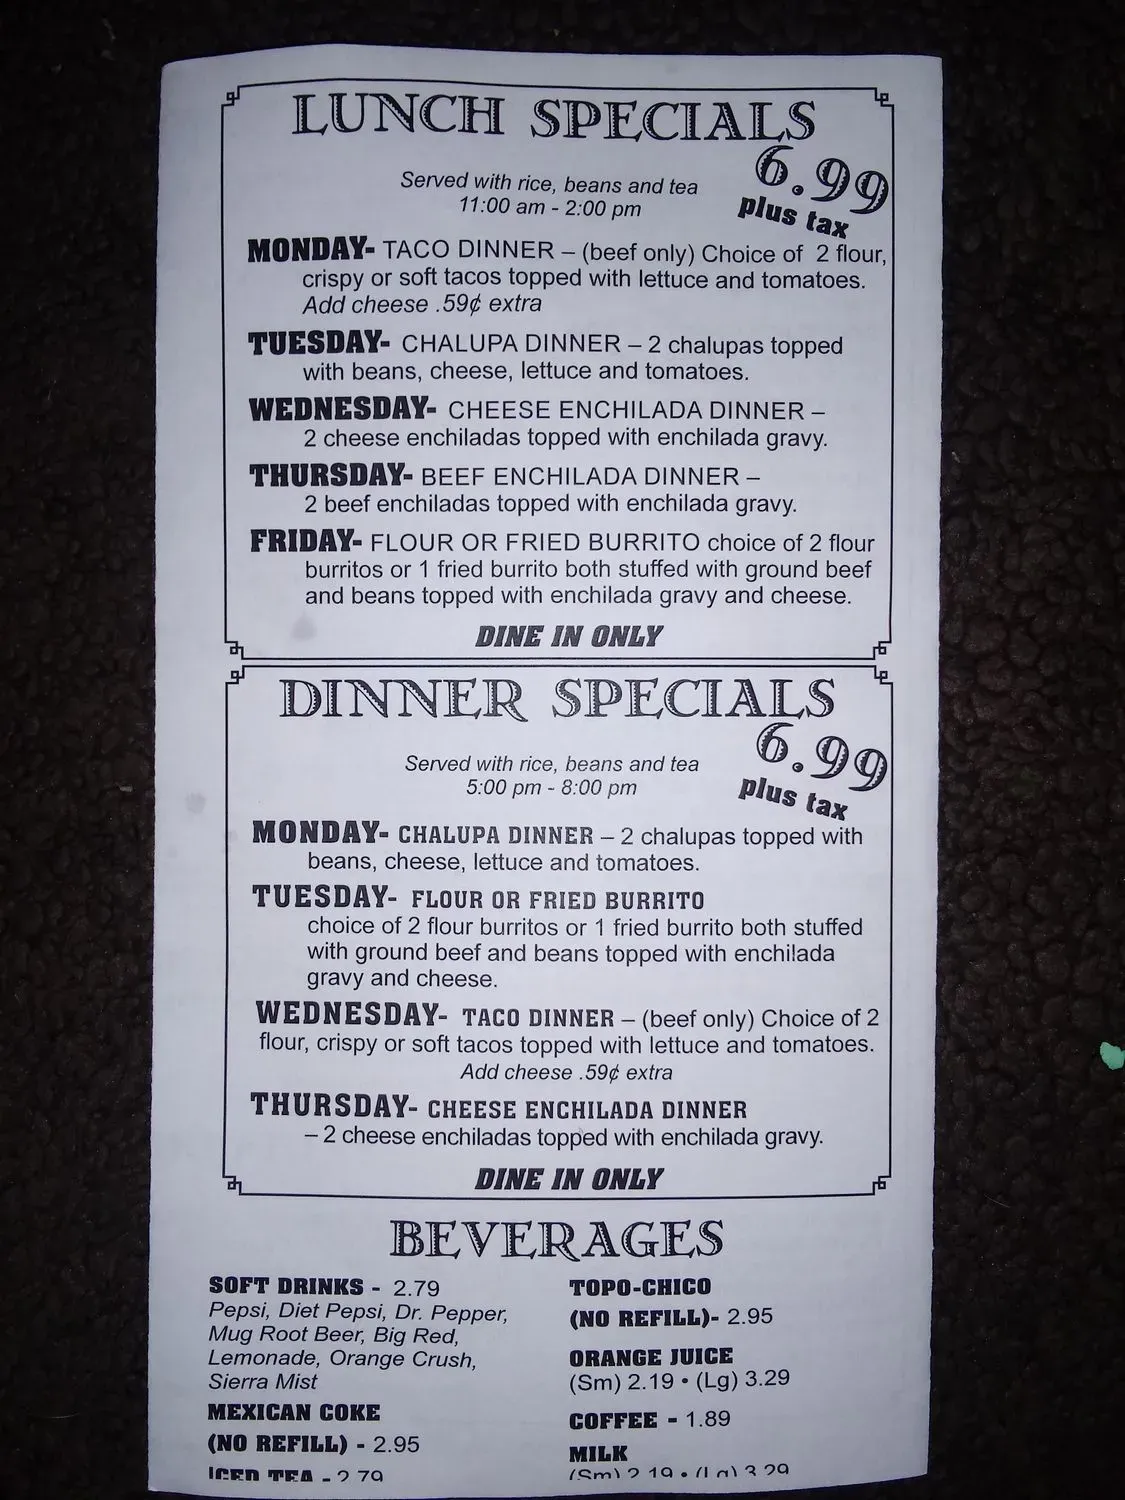 LUNCH SPECIALS
6.99
plus tax
Served with rice, beans and tea
11:00 am - 2:00 pm
MONDAY- TACO DINNER – (beef only) Choice of 2 flour,
crispy or soft tacos topped with lettuce and tomatoes.
Add cheese .59¢ extra
TUESDAY- CHALUPA DINNER – 2 chalupas topped
with beans, cheese, lettuce and tomatoes.
WEDNESDAY- CHEESE ENCHILADA DINNER –
2 cheese enchiladas topped with enchilada gravy.
THURSDAY- BEEF ENCHILADA DINNER –
2 beef enchiladas topped with enchilada gravy.
FRIDAY- FLOUR OR FRIED BURRITO choice of 2 flour
burritos or 1 fried burrito both stuffed with ground beef
and beans topped with enchilada gravy and cheese.
DINE IN ONLY
DINNER SPECIALS
6.99
plus tax
Served with rice, beans and tea
5:00 pm - 8:00 pm
MONDAY- CHALUPA DINNER – 2 chalupas topped with
beans, cheese, lettuce and tomatoes.
TUESDAY- FLOUR OR FRIED BURRITO
choice of 2 flour burritos or 1 fried burrito both stuffed
with ground beef and beans topped with enchilada
gravy and cheese.
WEDNESDAY- TACO DINNER – (beef only) Choice of 2
flour, crispy or soft tacos topped with lettuce and tomatoes.
Add cheese .59¢ extra
THURSDAY- CHEESE ENCHILADA DINNER
– 2 cheese enchiladas topped with enchilada gravy.
DINE IN ONLY
BEVERAGES
SOFT DRINKS - 2.79
Pepsi, Diet Pepsi, Dr. Pepper,
Mug Root Beer, Big Red,
Lemonade, Orange Crush,
Sierra Mist
MEXICAN COKE
(NO REFILL) - 2.95
ICED TEA - 2.79
TOPO-CHICO
(NO REFILL)- 2.95
ORANGE JUICE
(Sm) 2.19 • (Lg) 3.29
COFFEE - 1.89
MILK
(Sm) 2.19 • (Lg) 3.29